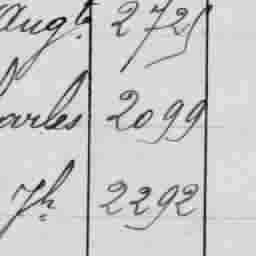 Augt. 2725
arles 2099
Th 2292